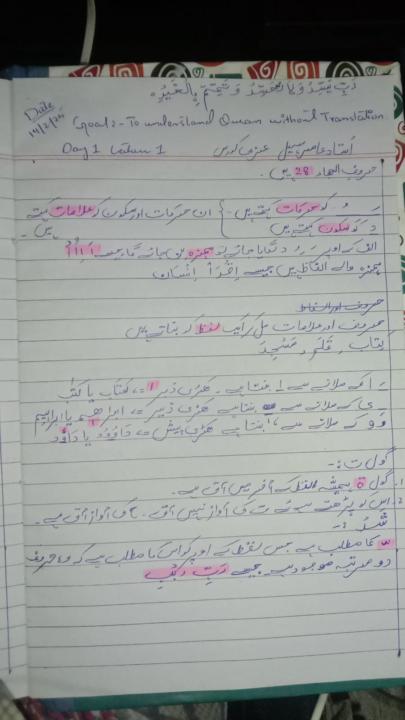 رَبِّ يَسِّرْ وَلَا تُعَسِّرْ وَ تَمِّمْ بِالْخَيْرِ
Date 14/2/25
Goal:- To understand Quran without Translation
Day 1 Lecture 1 استاد عامر سہیل عربی کورس
حروف الھجاء 28 ہیں۔
کو حرکات کہتے ہیں۔ ان حرکات اور سکون کو علامات کہتے
کو سکون کہتے ہیں ہیں۔
الف کے اوپر د لگایا جائے تو ھمزہ بن جائے گا، جیسے
ھمزہ والے الفاظ ہیں جیسے اِقْرَأْ اِنْسَان
حروف اور الفاظ
حروف اور علامات مل کر ایک لفظ کو بناتے ہیں
کِتَاب، قَلَم، مَسْجِد
ا کے ملانے سے بنتا ہے۔ کھڑی زبر = کتاب یا کتٰب
ی کے ملانے سے بنتا ہے کھڑی زیر = ابراھیم یا ابرٰھٖم
و کے ملانے سے بنتا ہے کھڑی پیش = دَاوُوْد یا دَاوٗد
گول ت:-
1. گول ة ہمیشہ لفظ کے آخر میں آتی ہے۔
2. اس کو پڑھتے ہوئے ت کی آواز نہیں آتی۔ ح کی آواز آتی ہے۔
شد :-
کا مطلب ہے جس لفظ کے اوپر ہو اس کا مطلب ہے کہ وہ حروف
دو مرتبہ موجود ہے جیسے رَبِّ